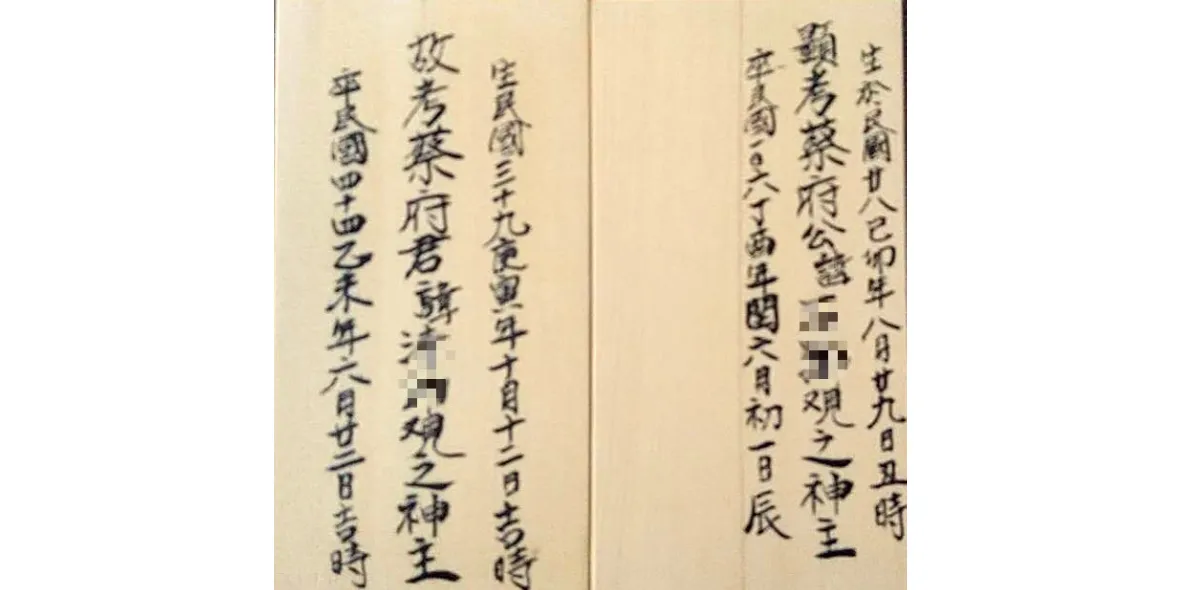 生於民國廿八己卯年八月廿九日丑時
顯考蔡府公諱觀之神主
卒民國一0六丁酉年閏六月初一日辰
生民國三十九庚寅年十月十二日吉時
故考蔡府君諱清觀之神主
卒民國四十四乙未年六月廿二日吉時